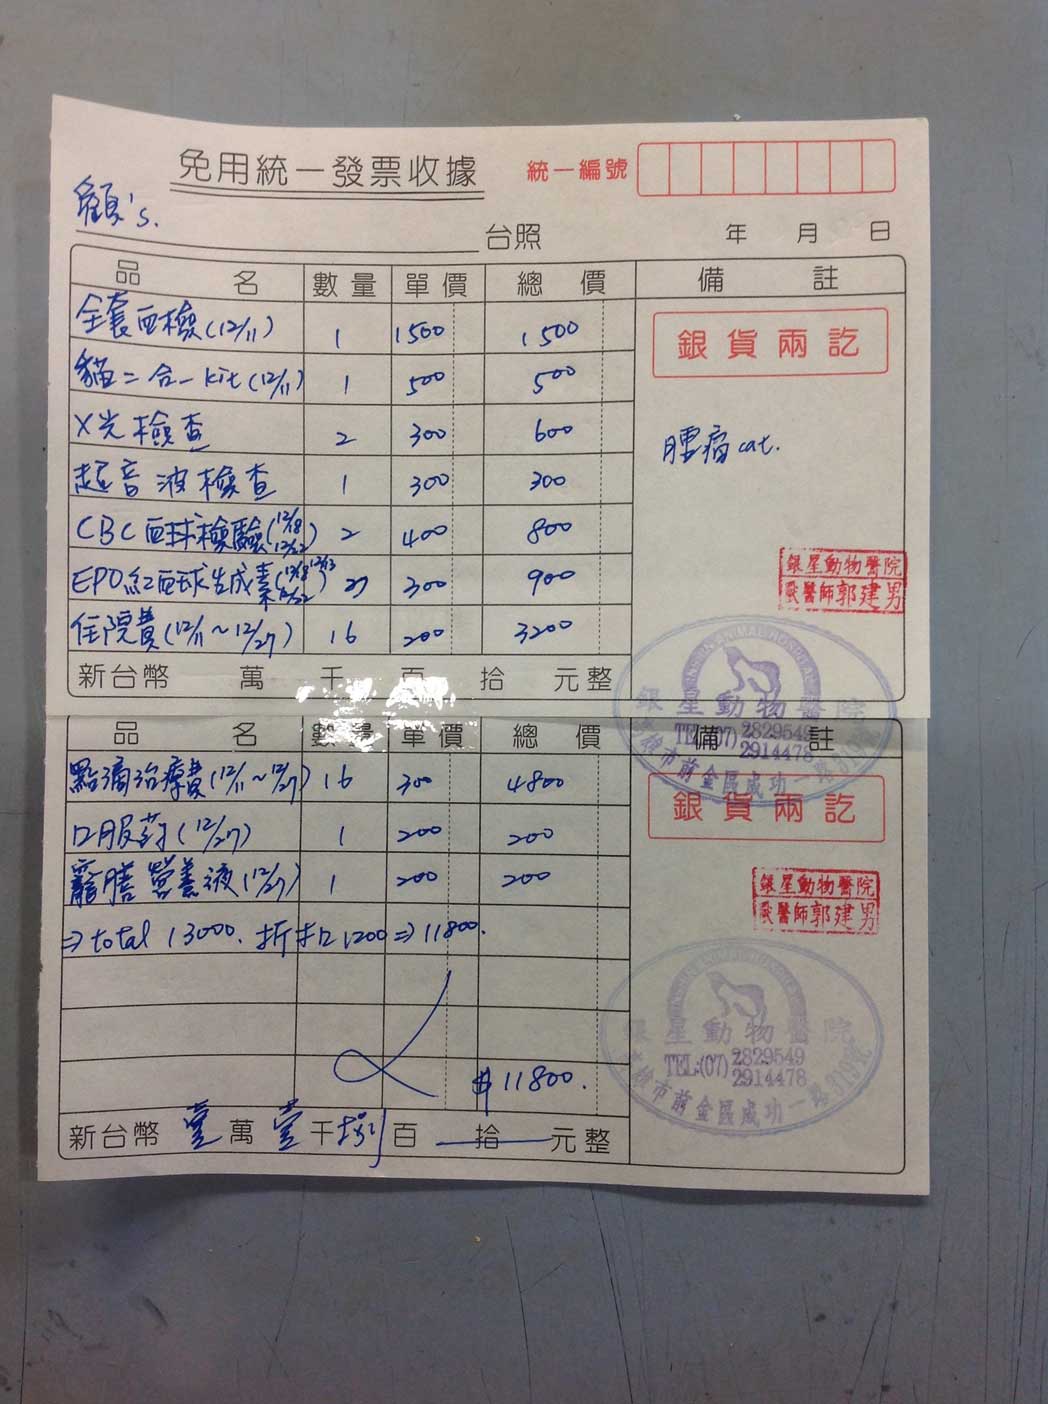 免用統一發票收據 統一編號
顧's.
台照 年 月 日
品 名 數量 單價 總 價 備 註
全套血檢(12/11) 1 1500 1500
銀貨兩訖
貓二合一kit(12/11) 1 500 500
X光檢查 2 300 600
腫瘤cat.
超音波檢查 1 300 300
CBC血球檢驗(12/18 12/22) 2 400 800
EPO紅血球生成素(12/18 12/22 12/13) 300 900
銀星動物醫院
獸醫師郭建男
住院費(12/11~12/27) 16 200 3200
新台幣 萬 千 百 拾 元整
銀星動物醫院
TEL:(07)2829549
2914478
市前金區成功一路319號
品 名 數量 單價 總 價 備 註
點滴治療費(12/11~12/27) 16 300 4800
銀貨兩訖
口服葯(12/27) 1 200 200
寵膳營養液(12/27) 1 200 200
銀星動物醫院
獸醫師郭建男
⇒total 13000. 折扣1200⇒11800.
銀星動物醫院
TEL:(07)2829549
2914478
市前金區成功一路319號
$11800.
新台幣 壹萬壹千捌百 拾 元整